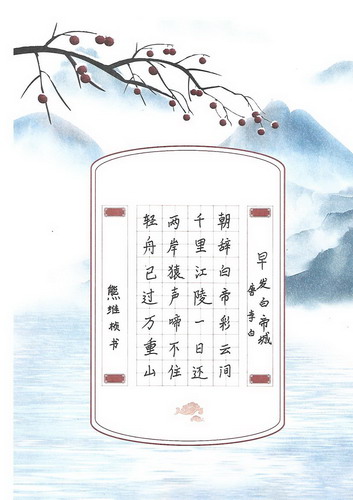 早发白帝城
唐 李白
朝辞白帝彩云间
千里江陵一日还
两岸猿声啼不住
轻舟已过万重山
熊维书